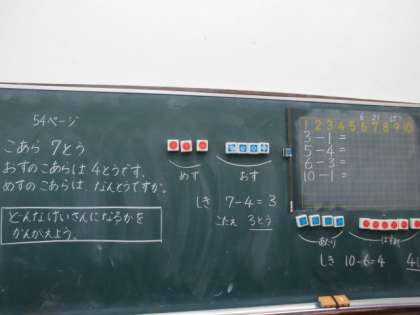 54ページ
こあら 7とう
おすのこあらは 4とうです。
めすのこあらは、なんとうですか。
どんなけいさんになるかを
かんがえよう。
めす おす
しき 7-4=3
こたえ 3とう
1 2 3 4 5 6 7 8 9 10
3-1=
2-1=
5-4=
6-3=
10-1=
あたり はずれ
しき 10-6=4